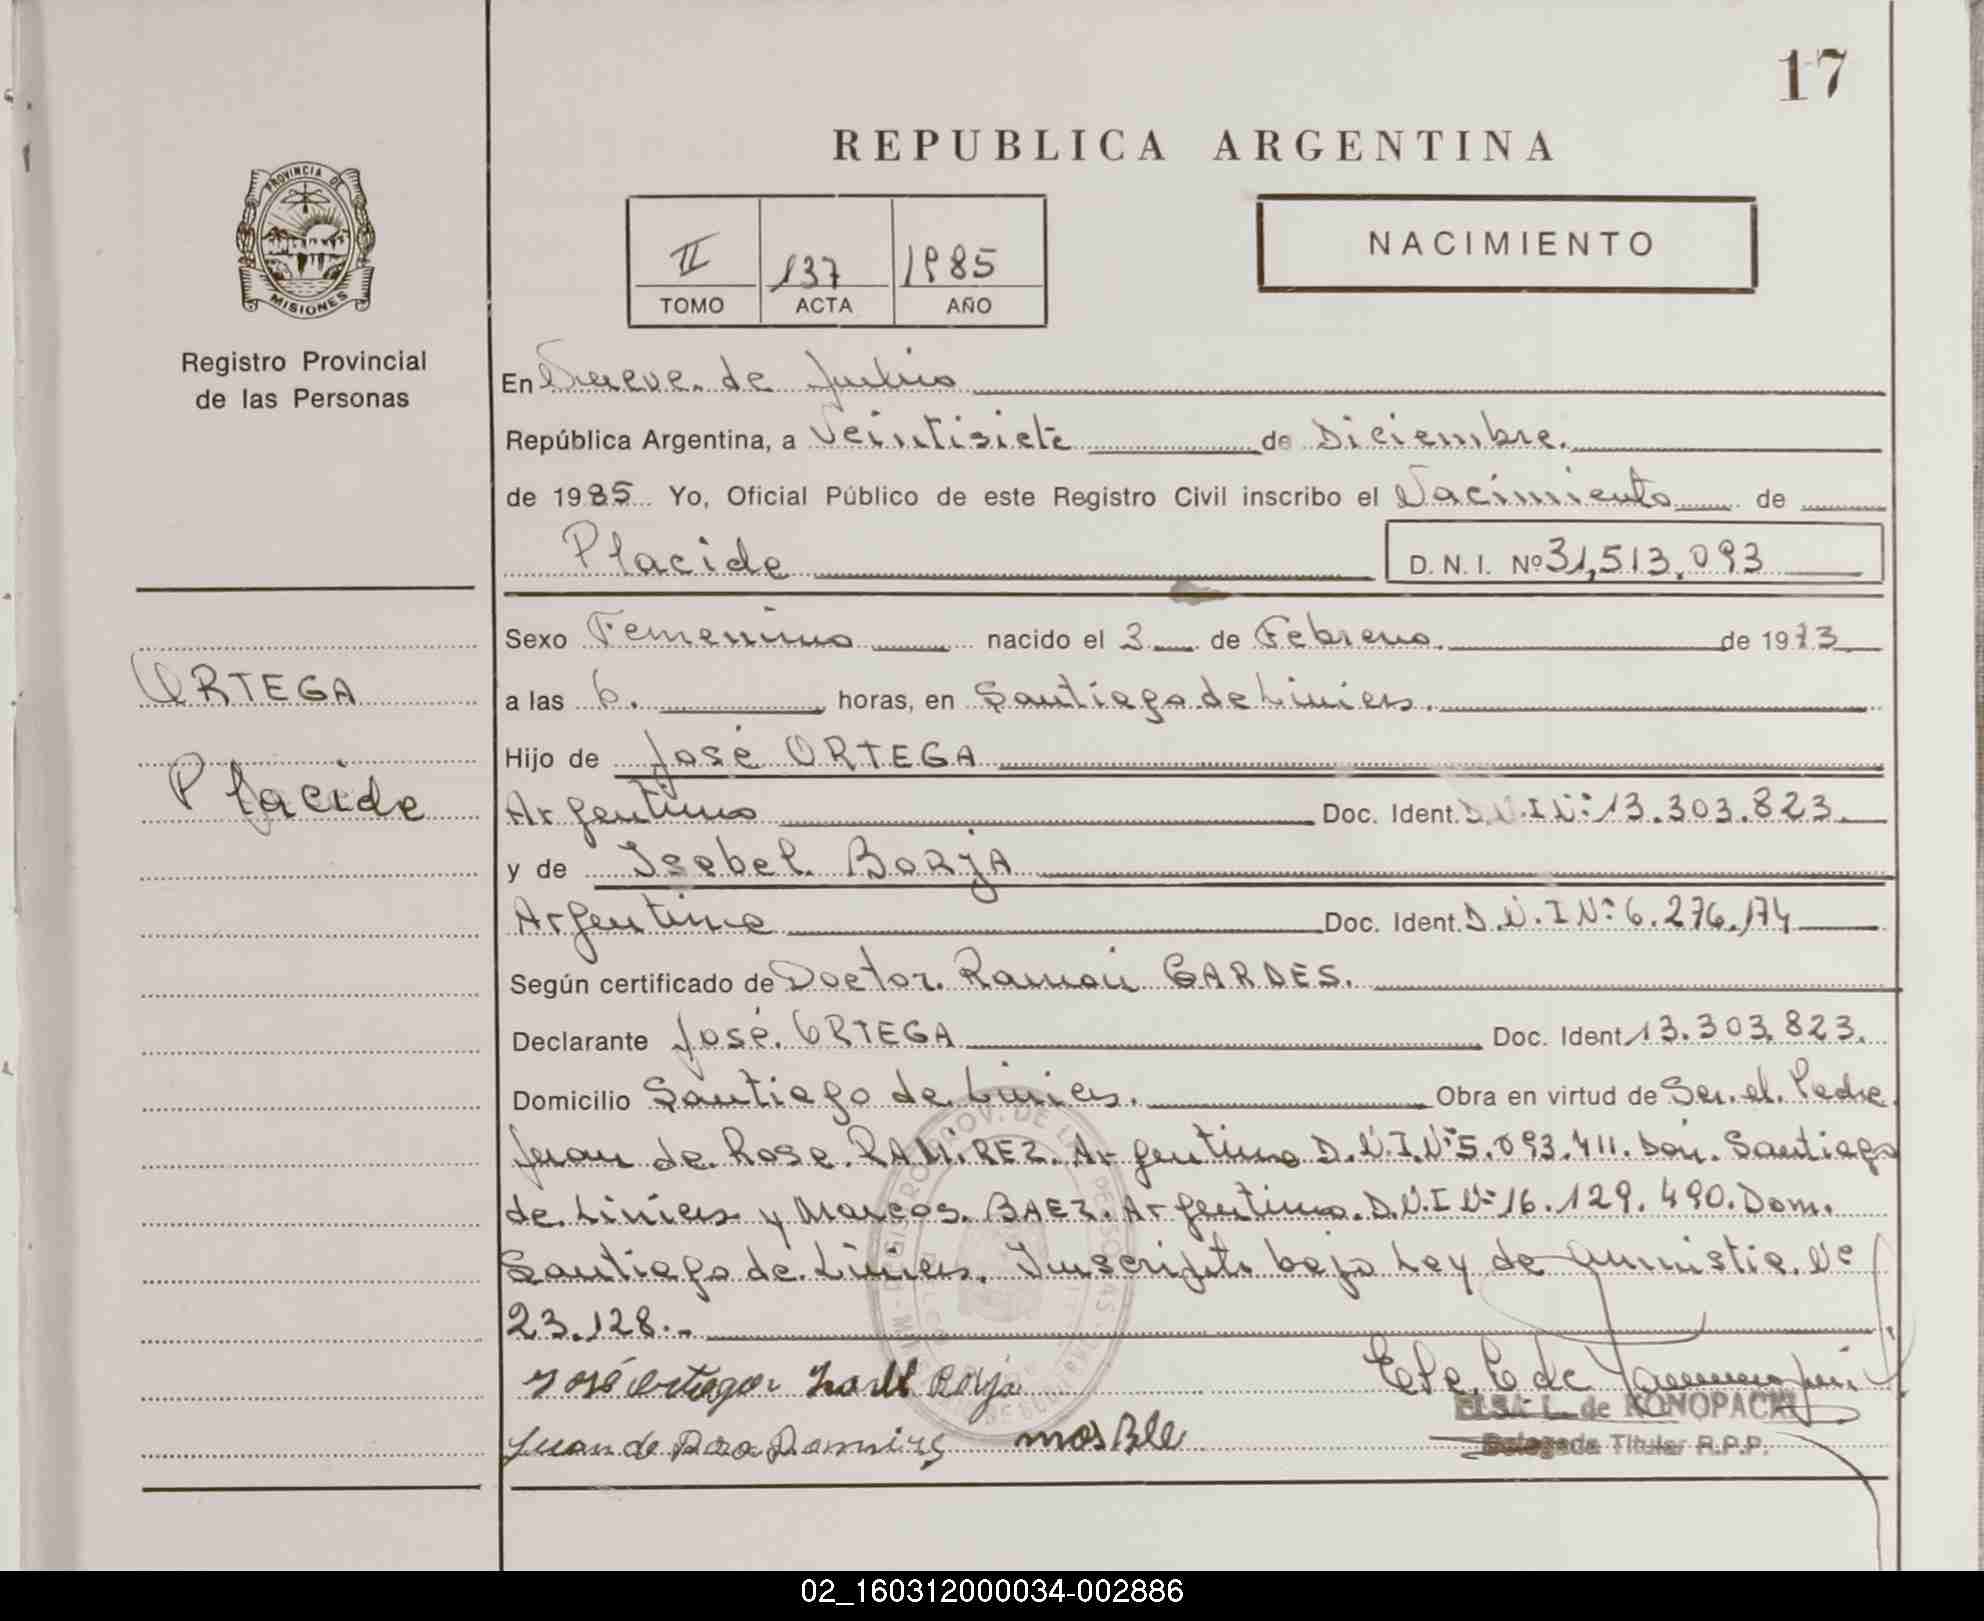 17
REPUBLICA ARGENTINA
PROVINCIA DE
MISIONES
Registro Provincial
de las Personas
II 137 1985
TOMO ACTA AÑO
NACIMIENTO
En Nueve de Julio
República Argentina, a Veintisiete de Diciembre.
de 1985 Yo, Oficial Público de este Registro Civil inscribo el Nacimiento de
Placide
D. N. I. Nº 31,513,093
ORTEGA
Placide
Sexo Femenino nacido el 3 de Febrero. de 1973
a las 6. horas, en Santiago de Liniers.
Hijo de José ORTEGA
Argentino Doc. Ident. D.N.I Nº 13.303.823.
y de Isabel BORJA
Argentina Doc. Ident. D.N.I Nº 6.276.174
Según certificado de Doctor. Ramón GARDES.
Declarante José. ORTEGA Doc. Ident 13.303.823.
Domicilio Santiago de Liniers. Obra en virtud de Ser. el. Padre.
Juan de. Rosa. RAMIREZ. Argentino D.N.I.Nº 5.093.411. Dom. Santiago
de Liniers y Marcos. BAEZ. Argentino. D.N.I Nº 16.129.490. Dom.
Santiago de Liniers. Inscripto bajo Ley de Amnistia. Nº
23.128.-
José Ortega Borja
Juan de Ramires
ELSA L. de KONOPACKI
Delegada Titular R.P.P.
02_160312000034-002886